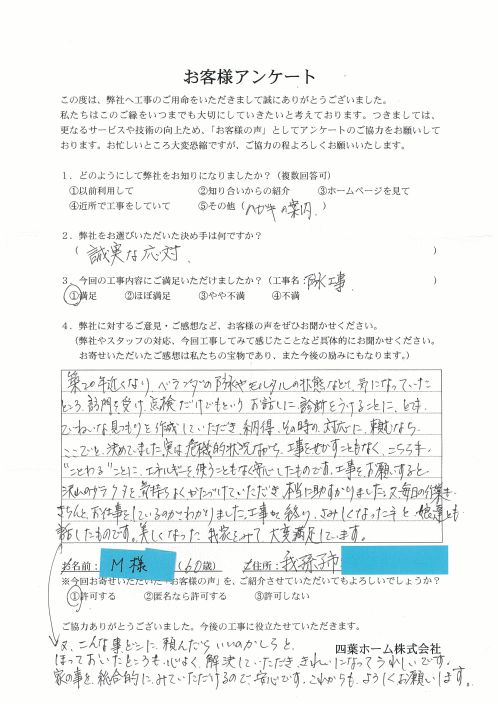 お客様アンケート
この度は、弊社へ工事のご用命をいただきまして誠にありがとうございました。
私たちはこのご縁をいつまでも大切にしていきたいと考えております。つきましては、
更なるサービスや技術の向上ため、「お客様の声」としてアンケートのご協力をお願いして
おります。お忙しいところ大変恐縮ですが、ご協力の程よろしくお願いいたします。
1．どのようにして弊社をお知りになりましたか？（複数回答可）
①以前利用して ②知り合いからの紹介 ③ホームページを見て
④近所で工事をしていて ⑤その他（ハガキの案内、）
2．弊社をお選びいただいた決め手は何ですか？
（ 誠実な応対、 ）
3．今回の工事内容にご満足いただけましたか？（工事名：防水工事、 ）
①満足 ②ほぼ満足 ③やや不満 ④不満
4．弊社に対するご意見・ご感想など、お客様の声をぜひお聞かせください。
（弊社やスタッフの対応、今回工事してみて感じたことなど具体的にお聞かせください。
お寄せいただいたご感想は私たちの宝物であり、また今後の励みにもなります。）
築20年近くなり、ベランダの防水やモルタルの状態などとて、気になっていた
ところ、訪問を受け、点検だけでもという お話しに、診断をうけることに、
ていねいな見つもりを作成していただき、納得、その時の対応に、頼むなら
ここでと、決めてました。実は危機的状況ながら、工事をせかすこともなく、こちらも
"ことわる"ことに、エネルギーを使うこともなく安心したものです。工事をお願いすると
沢山のガラクタを気持ちよくかたづけていただき、本当に助すかりました。又、毎日の作業を
きちんと、お仕事をしているのがわかりました。工事が終り、さみしくなったネと、娘達とも
話したものです。美しくなった 我家をみて、大変満足しています。
お名前： M様 （60歳） ご住所： 我孫子市
※今回お寄せいただいた「お客様の声」を、ご紹介させていただいてもよろしいでしょうか？
①許可する ②匿名なら許可する ③許可しない
ご協力ありがとうございました。今後の工事に役立たせていただきます。
四葉ホーム株式会社
又、こんな事どこに、頼んだらいいのかしらと、
ほっておいたところも、心よく、解決していただき、きれいになってうれしいです。
家の事を、総合的に、みていただけるので、安心です。これからも、よろしくお願いします。